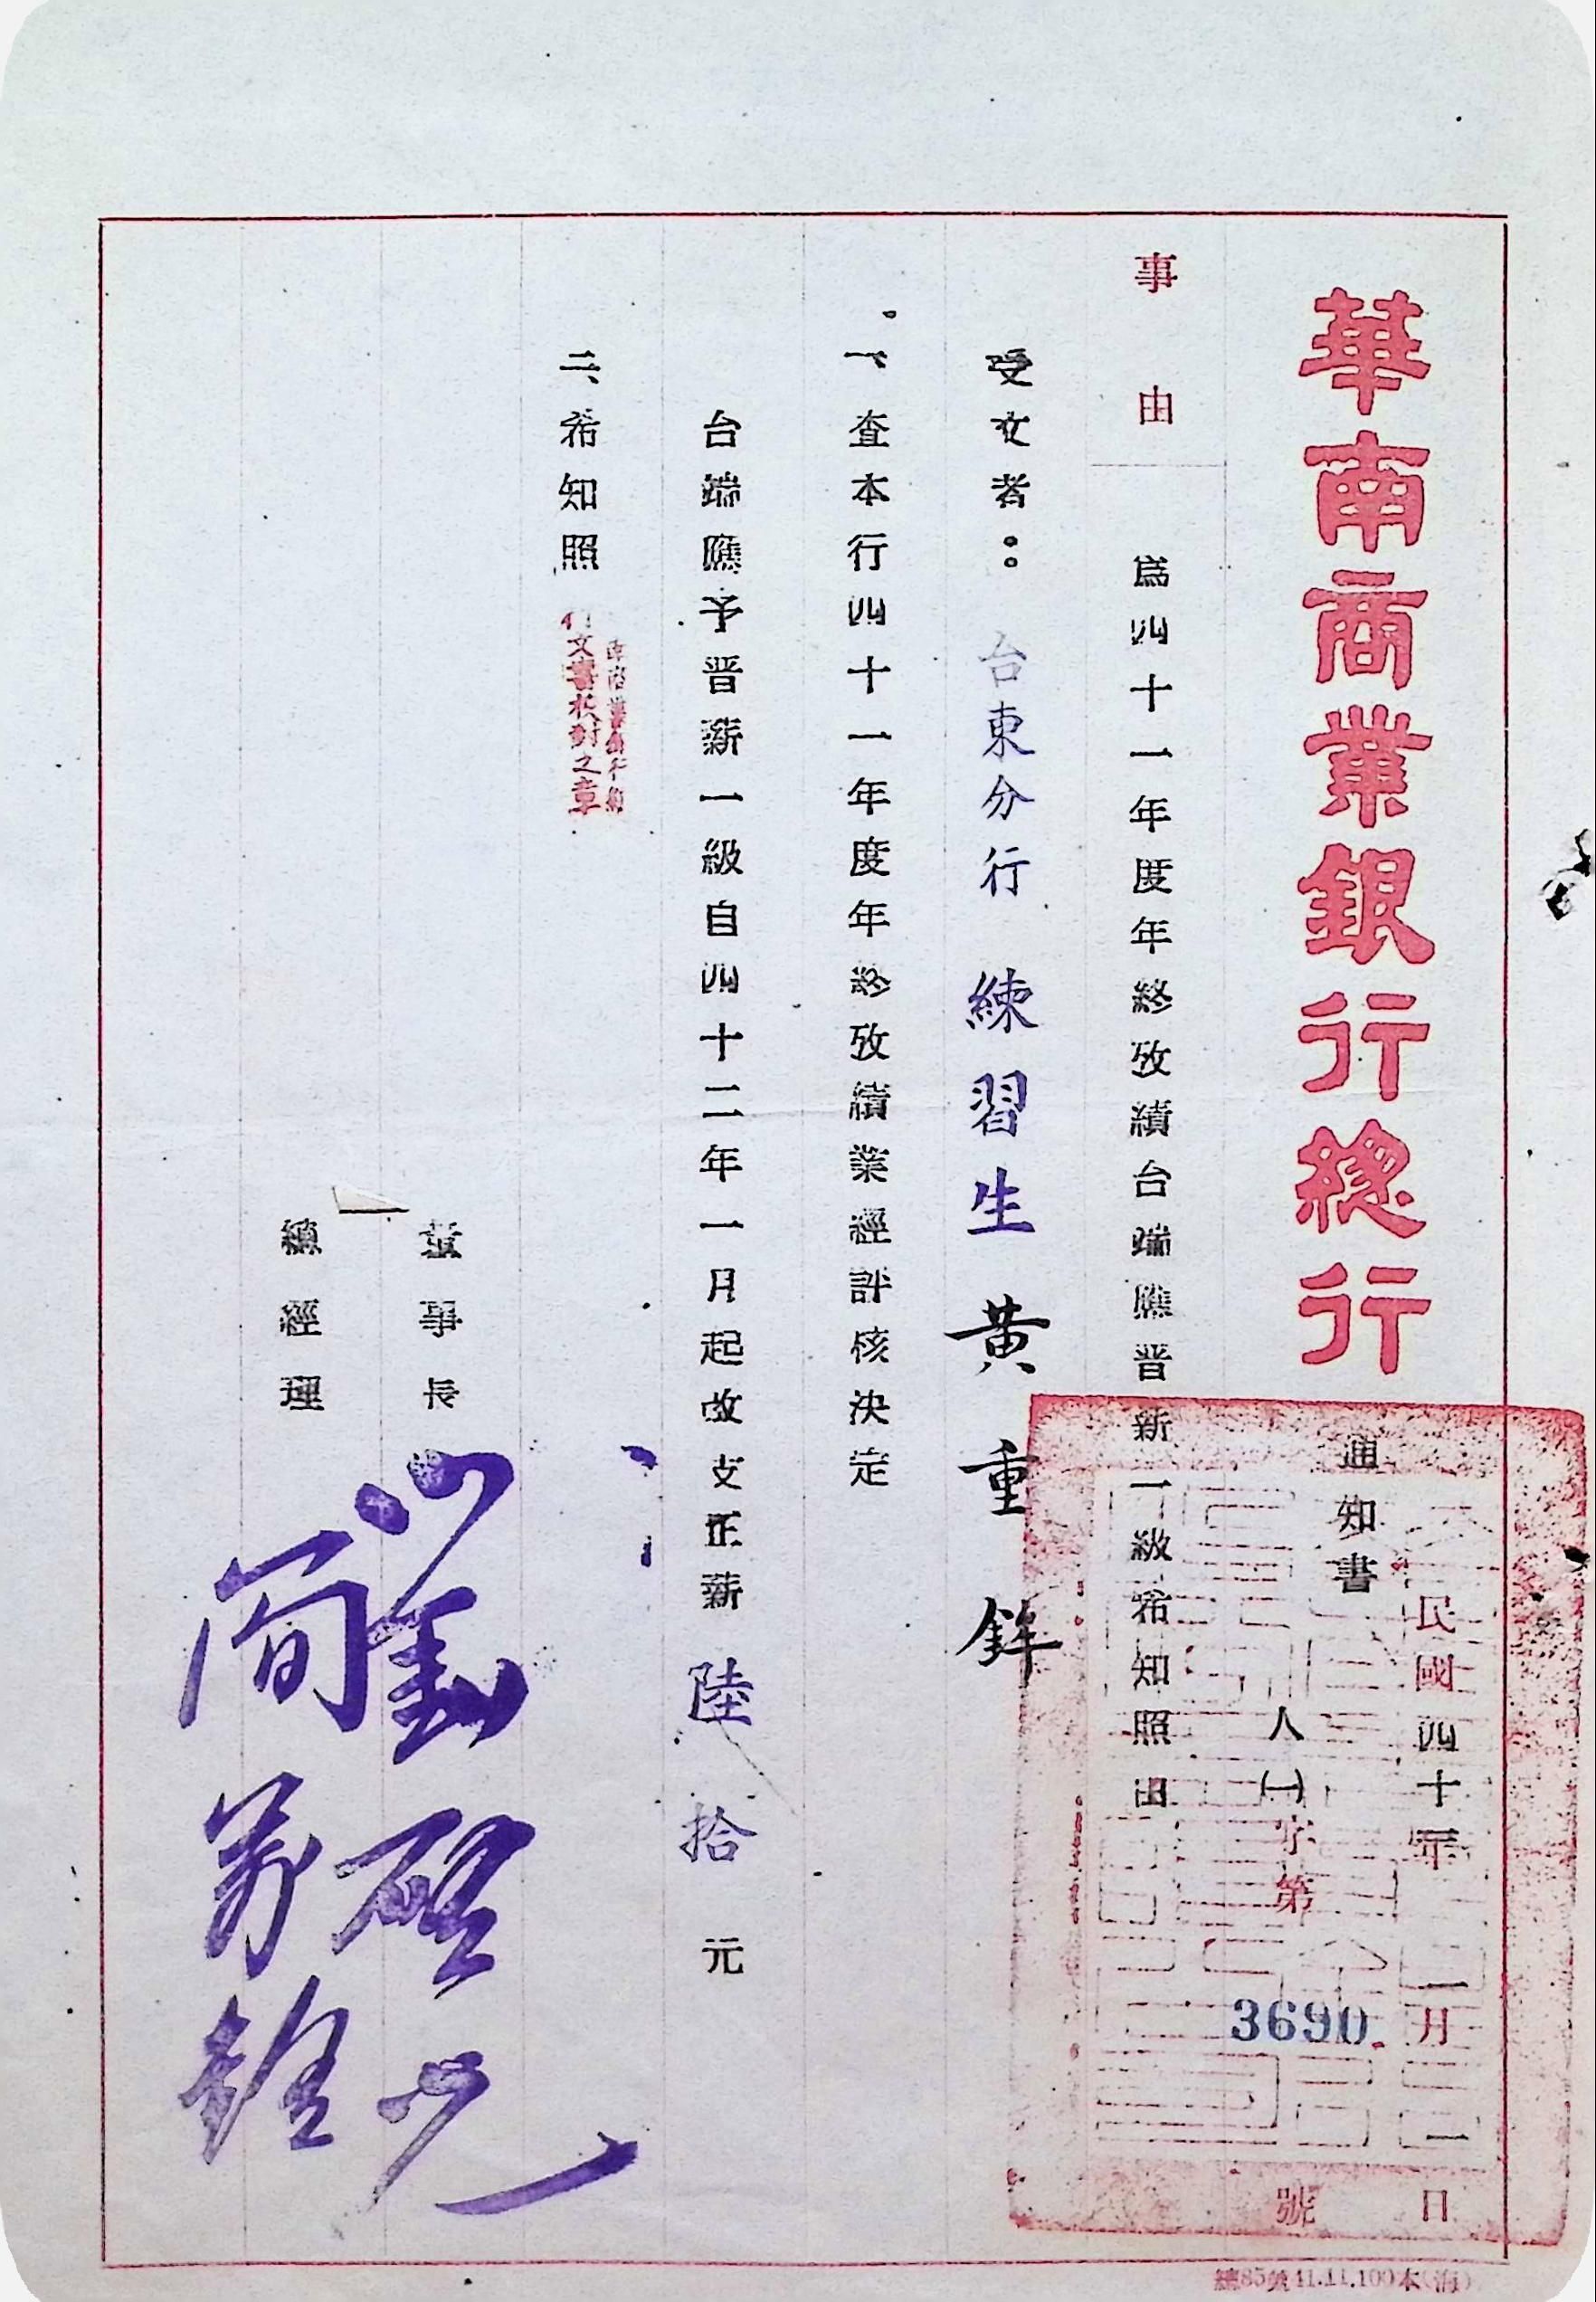 華南商業銀行總行
通知書
民國四十二年一月一日
人㈠字第3690號
事由
為四十一年度年終攷績台端應晋薪一級希知照由
受文者：台東分行 練習生 黃重鉾
一、查本行四十一年度年終攷績業經評核決定
台端應予晋薪一級自四十二年一月起改支正薪陸拾元
二、希知照
行文書校對之章
董事長 劉啓光
總經理
總85號41.11.100本(海)